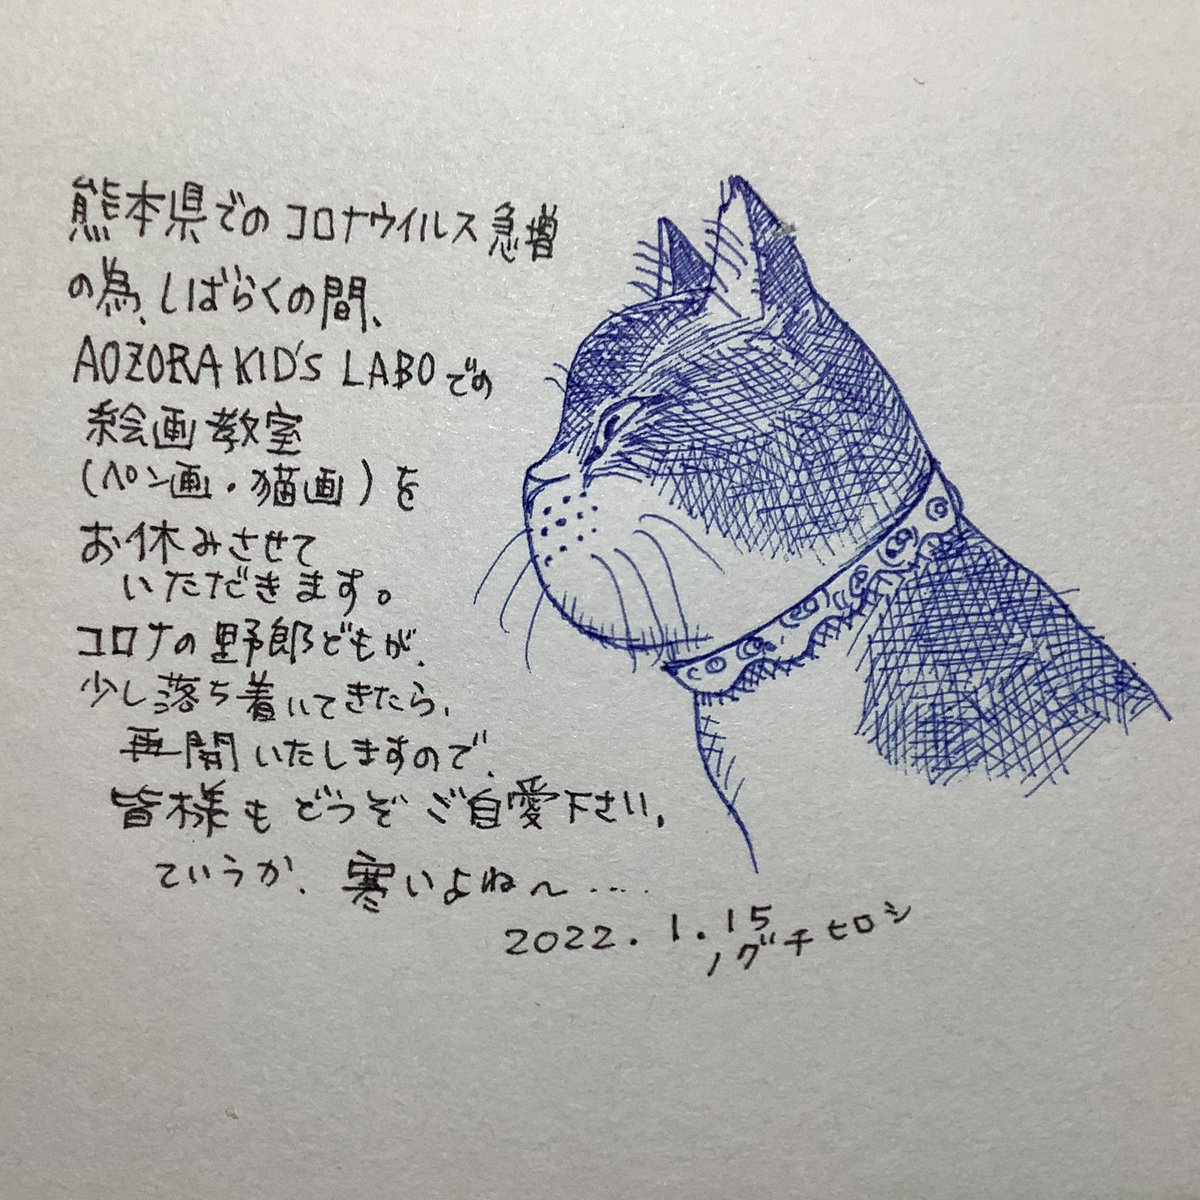 熊本県でのコロナウイルス急増
の為、しばらくの間、
AOZORA KID'S LABOでの
絵画教室
(ペン画・猫画)を
お休みさせて
いただきます。
コロナの野郎どもが、
少し落ち着いてきたら、
再開いたしますので、
皆様もどうぞご自愛下さい。
ていうか、寒いよね〜……
2022.1.15
ノグチヒロシ